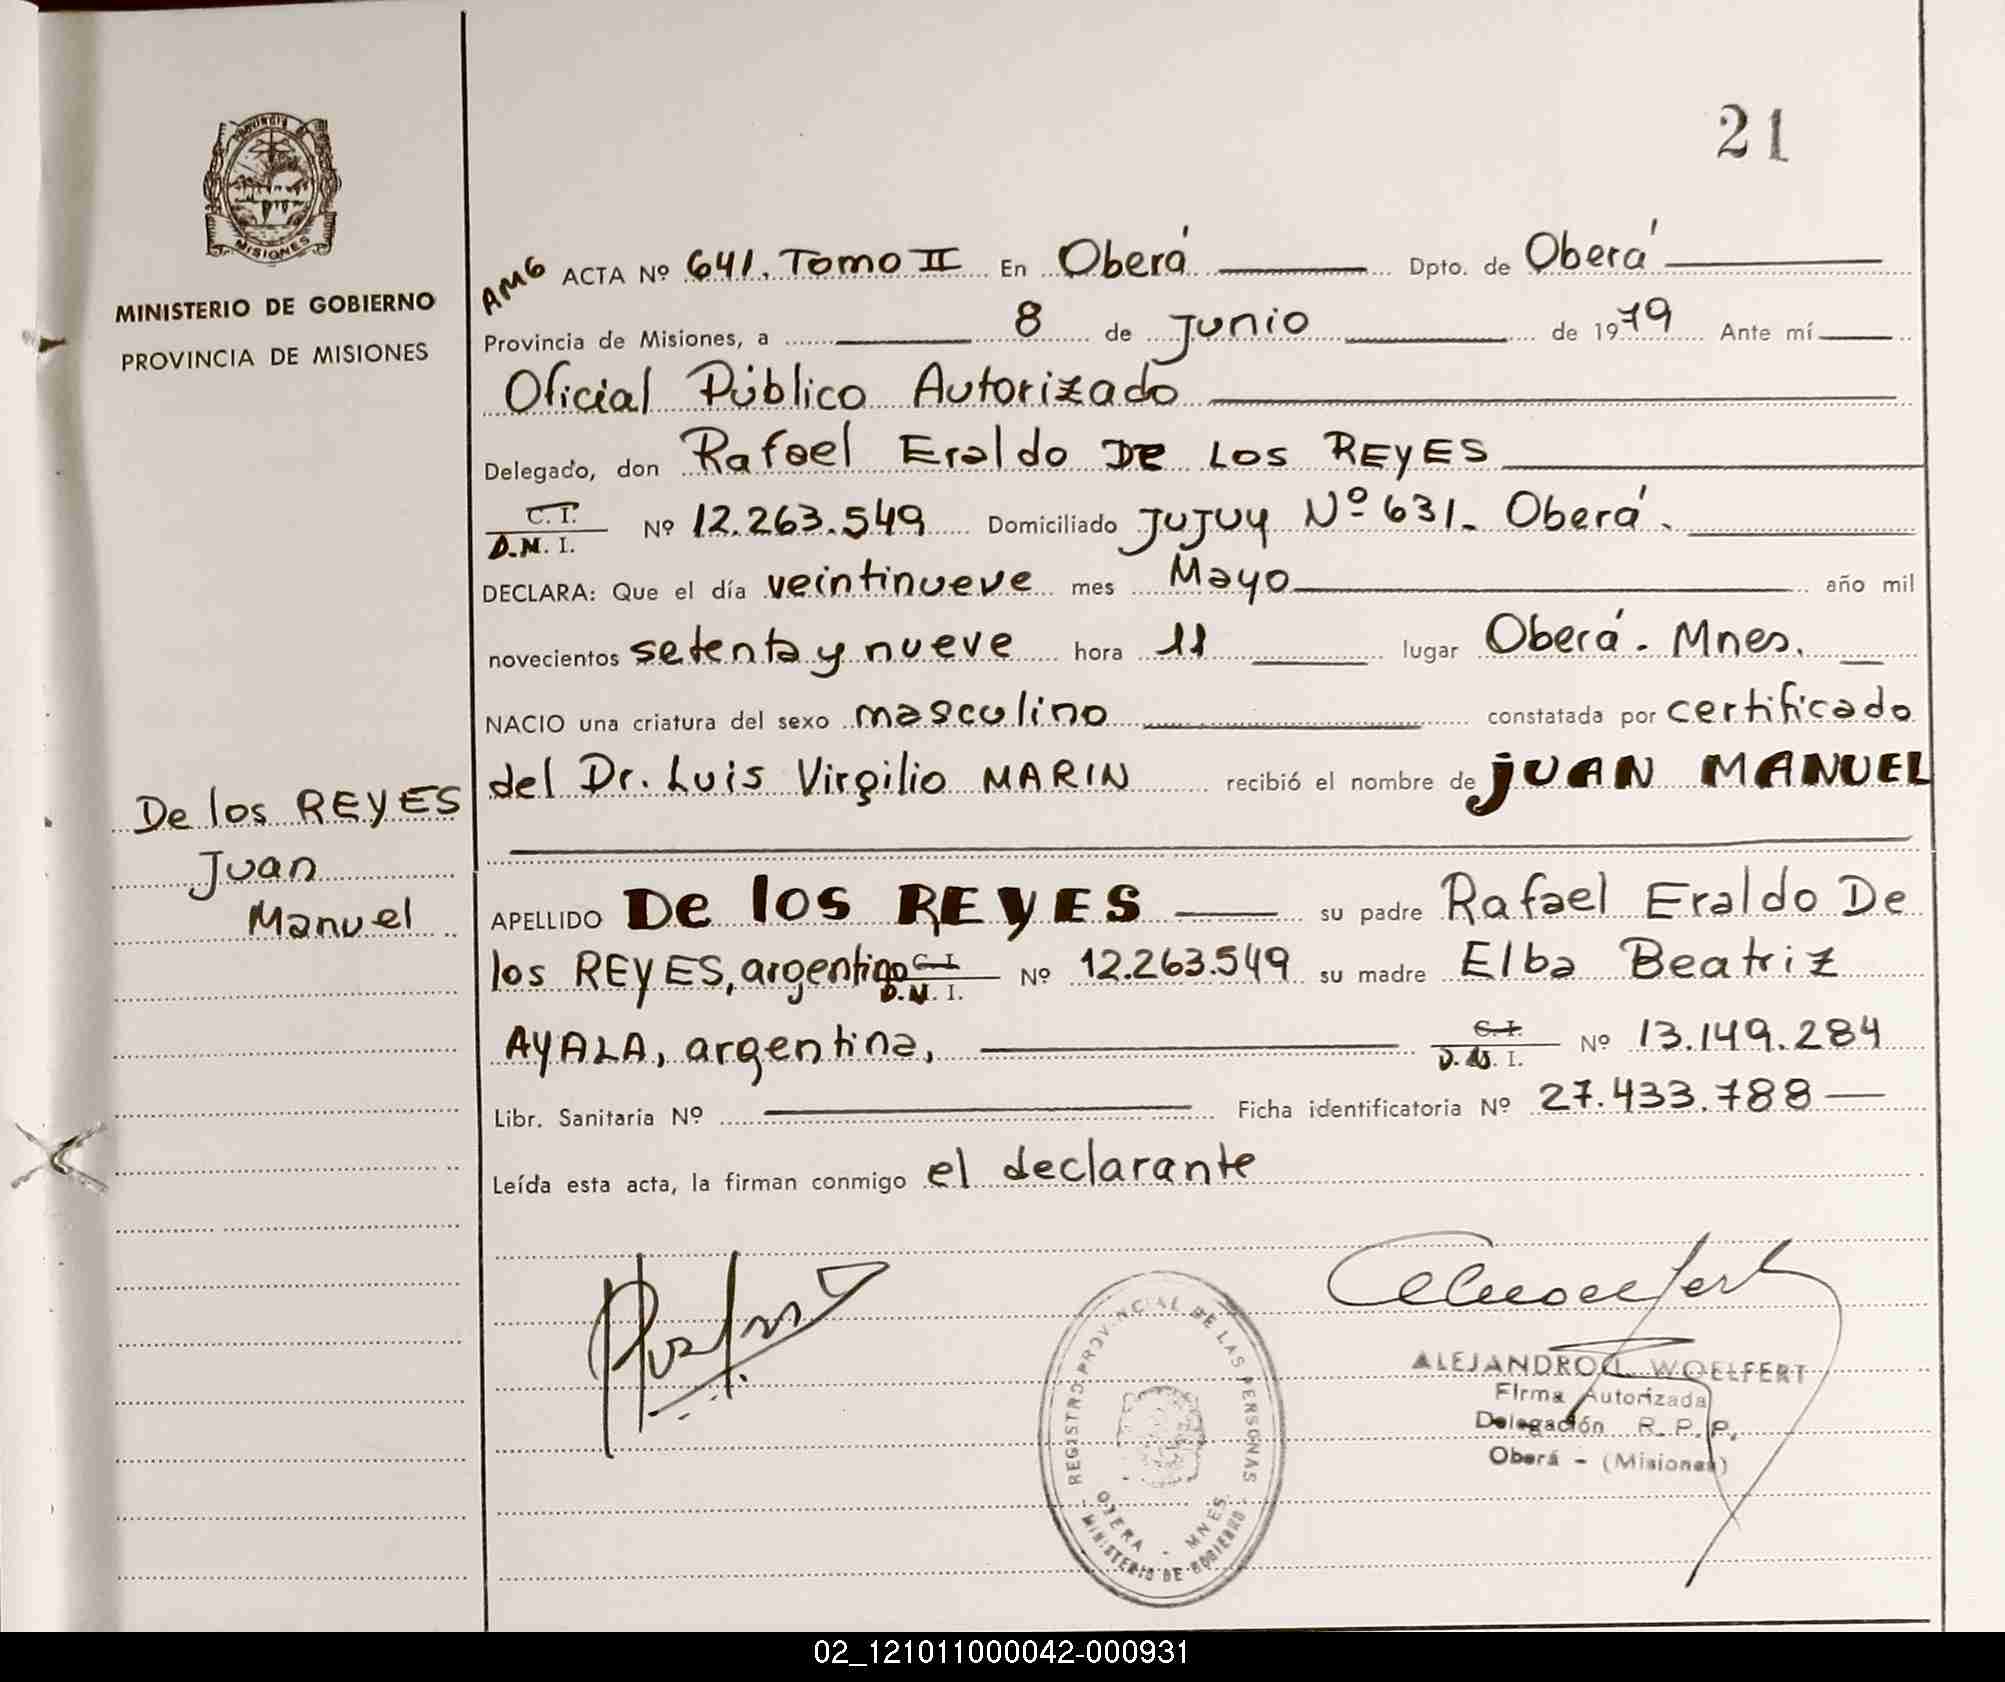 21
PROVINCIA DE
MISIONES
MINISTERIO DE GOBIERNO
PROVINCIA DE MISIONES
AMG ACTA Nº 641. Tomo II En Oberá Dpto. de Oberá
Provincia de Misiones, a 8 de Junio de 1979 Ante mí
Oficial Público Autorizado
Delegado, don Rafael Eraldo De Los REYES
C. I.
D.N.I. Nº 12.263.549 Domiciliado Jujuy Nº 631. Oberá.
DECLARA: Que el día veintinueve mes Mayo año mil
novecientos setenta y nueve hora 11 lugar Oberá. Mnes.
NACIO una criatura del sexo masculino constatada por certificado
del Dr. Luis Virgilio MARIN recibió el nombre de JUAN MANUEL
De los REYES
Juan
Manuel
APELLIDO De los REYES su padre Rafael Eraldo De
los REYES, argentino C. I. D.N.I. Nº 12.263.549 su madre Elba Beatriz
AYALA, argentina, C. I. D.N.I. Nº 13.149.284
Libr. Sanitaria Nº Ficha identificatoria Nº 27.433.788
Leída esta acta, la firman conmigo el declarante
REGISTRO PROVINCIAL DE LAS PERSONAS
OBERA - MNES.
MINISTERIO DE GOBIERNO
ALEJANDRO WOELFERT
Firma Autorizada
Delegación R. P. P.
Oberá - (Misiones)
02_121011000042-000931